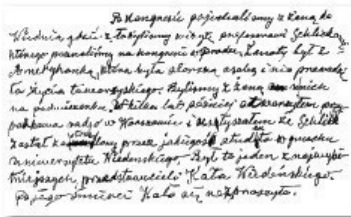 Po kongresie pojechaliśmy z żoną do
Wiednia, gdzie złożyliśmy wizytę profesorowi Schlick,
którego poznaliśmy na kongresie w Pradze. Żonaty był z
Amerykanką, która była słowną osobą i nie prowadzi
ła życia towarzyskiego. Byliśmy z żoną u nich
na podwieczorku. W kilka lat później otworzyłem przy
padkowo radio w Warszawie i usłyszałem że Schlick
został zabity przez jakiegoś studenta w gmachu
Uniwersytetu Wiedeńskiego. Był to jeden z najwybit
niejszych przedstawicieli Koła Wiedeńskiego.
Po jego śmierci Koło się rozproszyło.